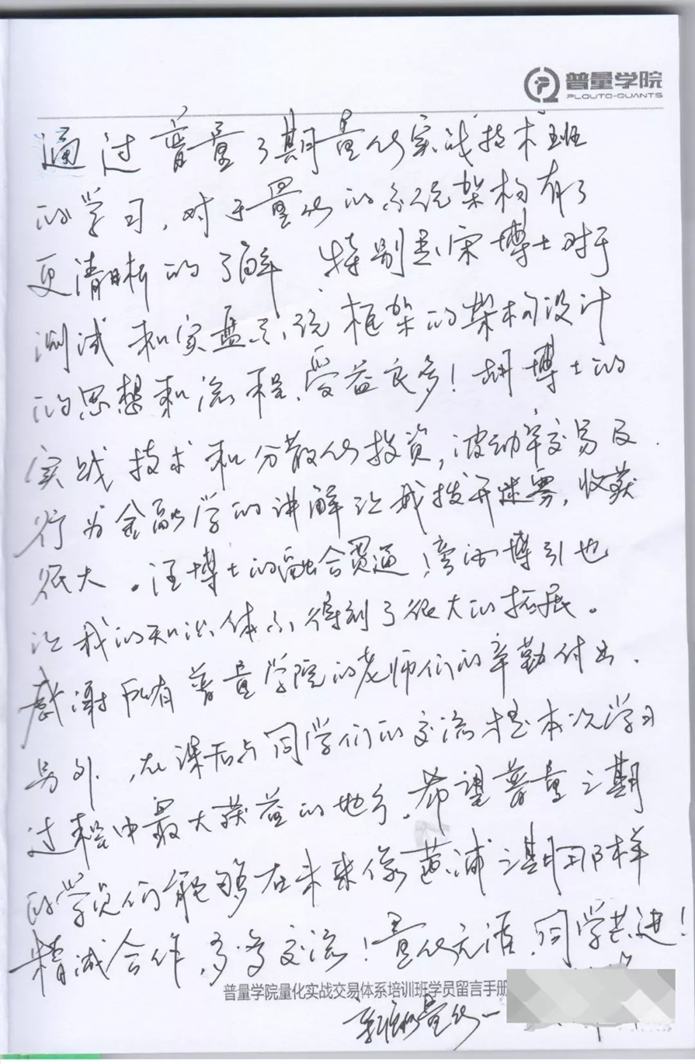 普量学院
PLOUTO-QUANTS
通过普量3期量化实战技术班
的学习，对于量化的系统架构有了
更清晰的了解 特别是宋博士对于
测试和实盘系统框架的架构设计
的思想和流程，受益良多！胡博士的
实战技术和分散化投资，波动率交易及
行为金融学的讲解让我拨开迷雾，收获
很大。汪博士的融会贯通！旁征博引也
让我的知识体系得到了很大的拓展。
感谢所有普量学院的老师们的辛勤付出.
另外，在课后与同学们的交流是本次学习
过程中最大获益的地方。希望普量三期
的学员们能够在未来像黄浦三期那样
精诚合作，多多交流！量化无涯，同学共进！
普量学院量化实战交易体系培训班学员留言手册
量化一